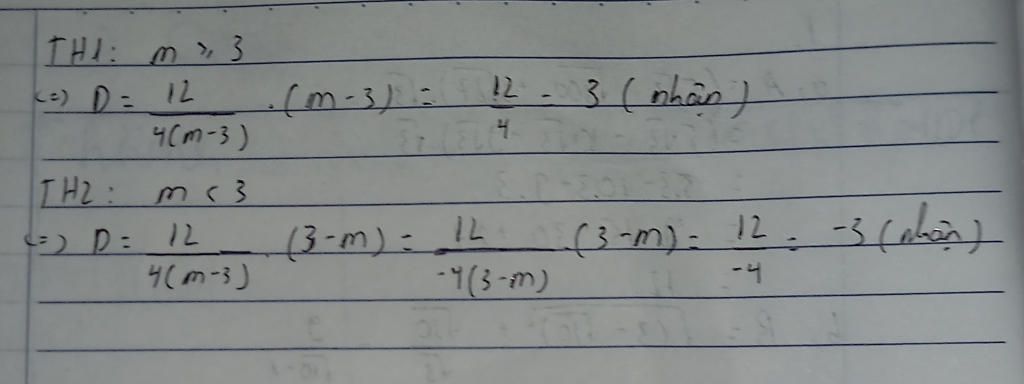 TH1: m ≥ 3
<=> D = 12/4(m-3) . (m-3) = 12/4 = 3 (nhận)
TH2: m < 3
<=> D = 12/4(m-3) . (3-m) = 12/-4(3-m) . (3-m) = 12/-4 = -3 (nhận)